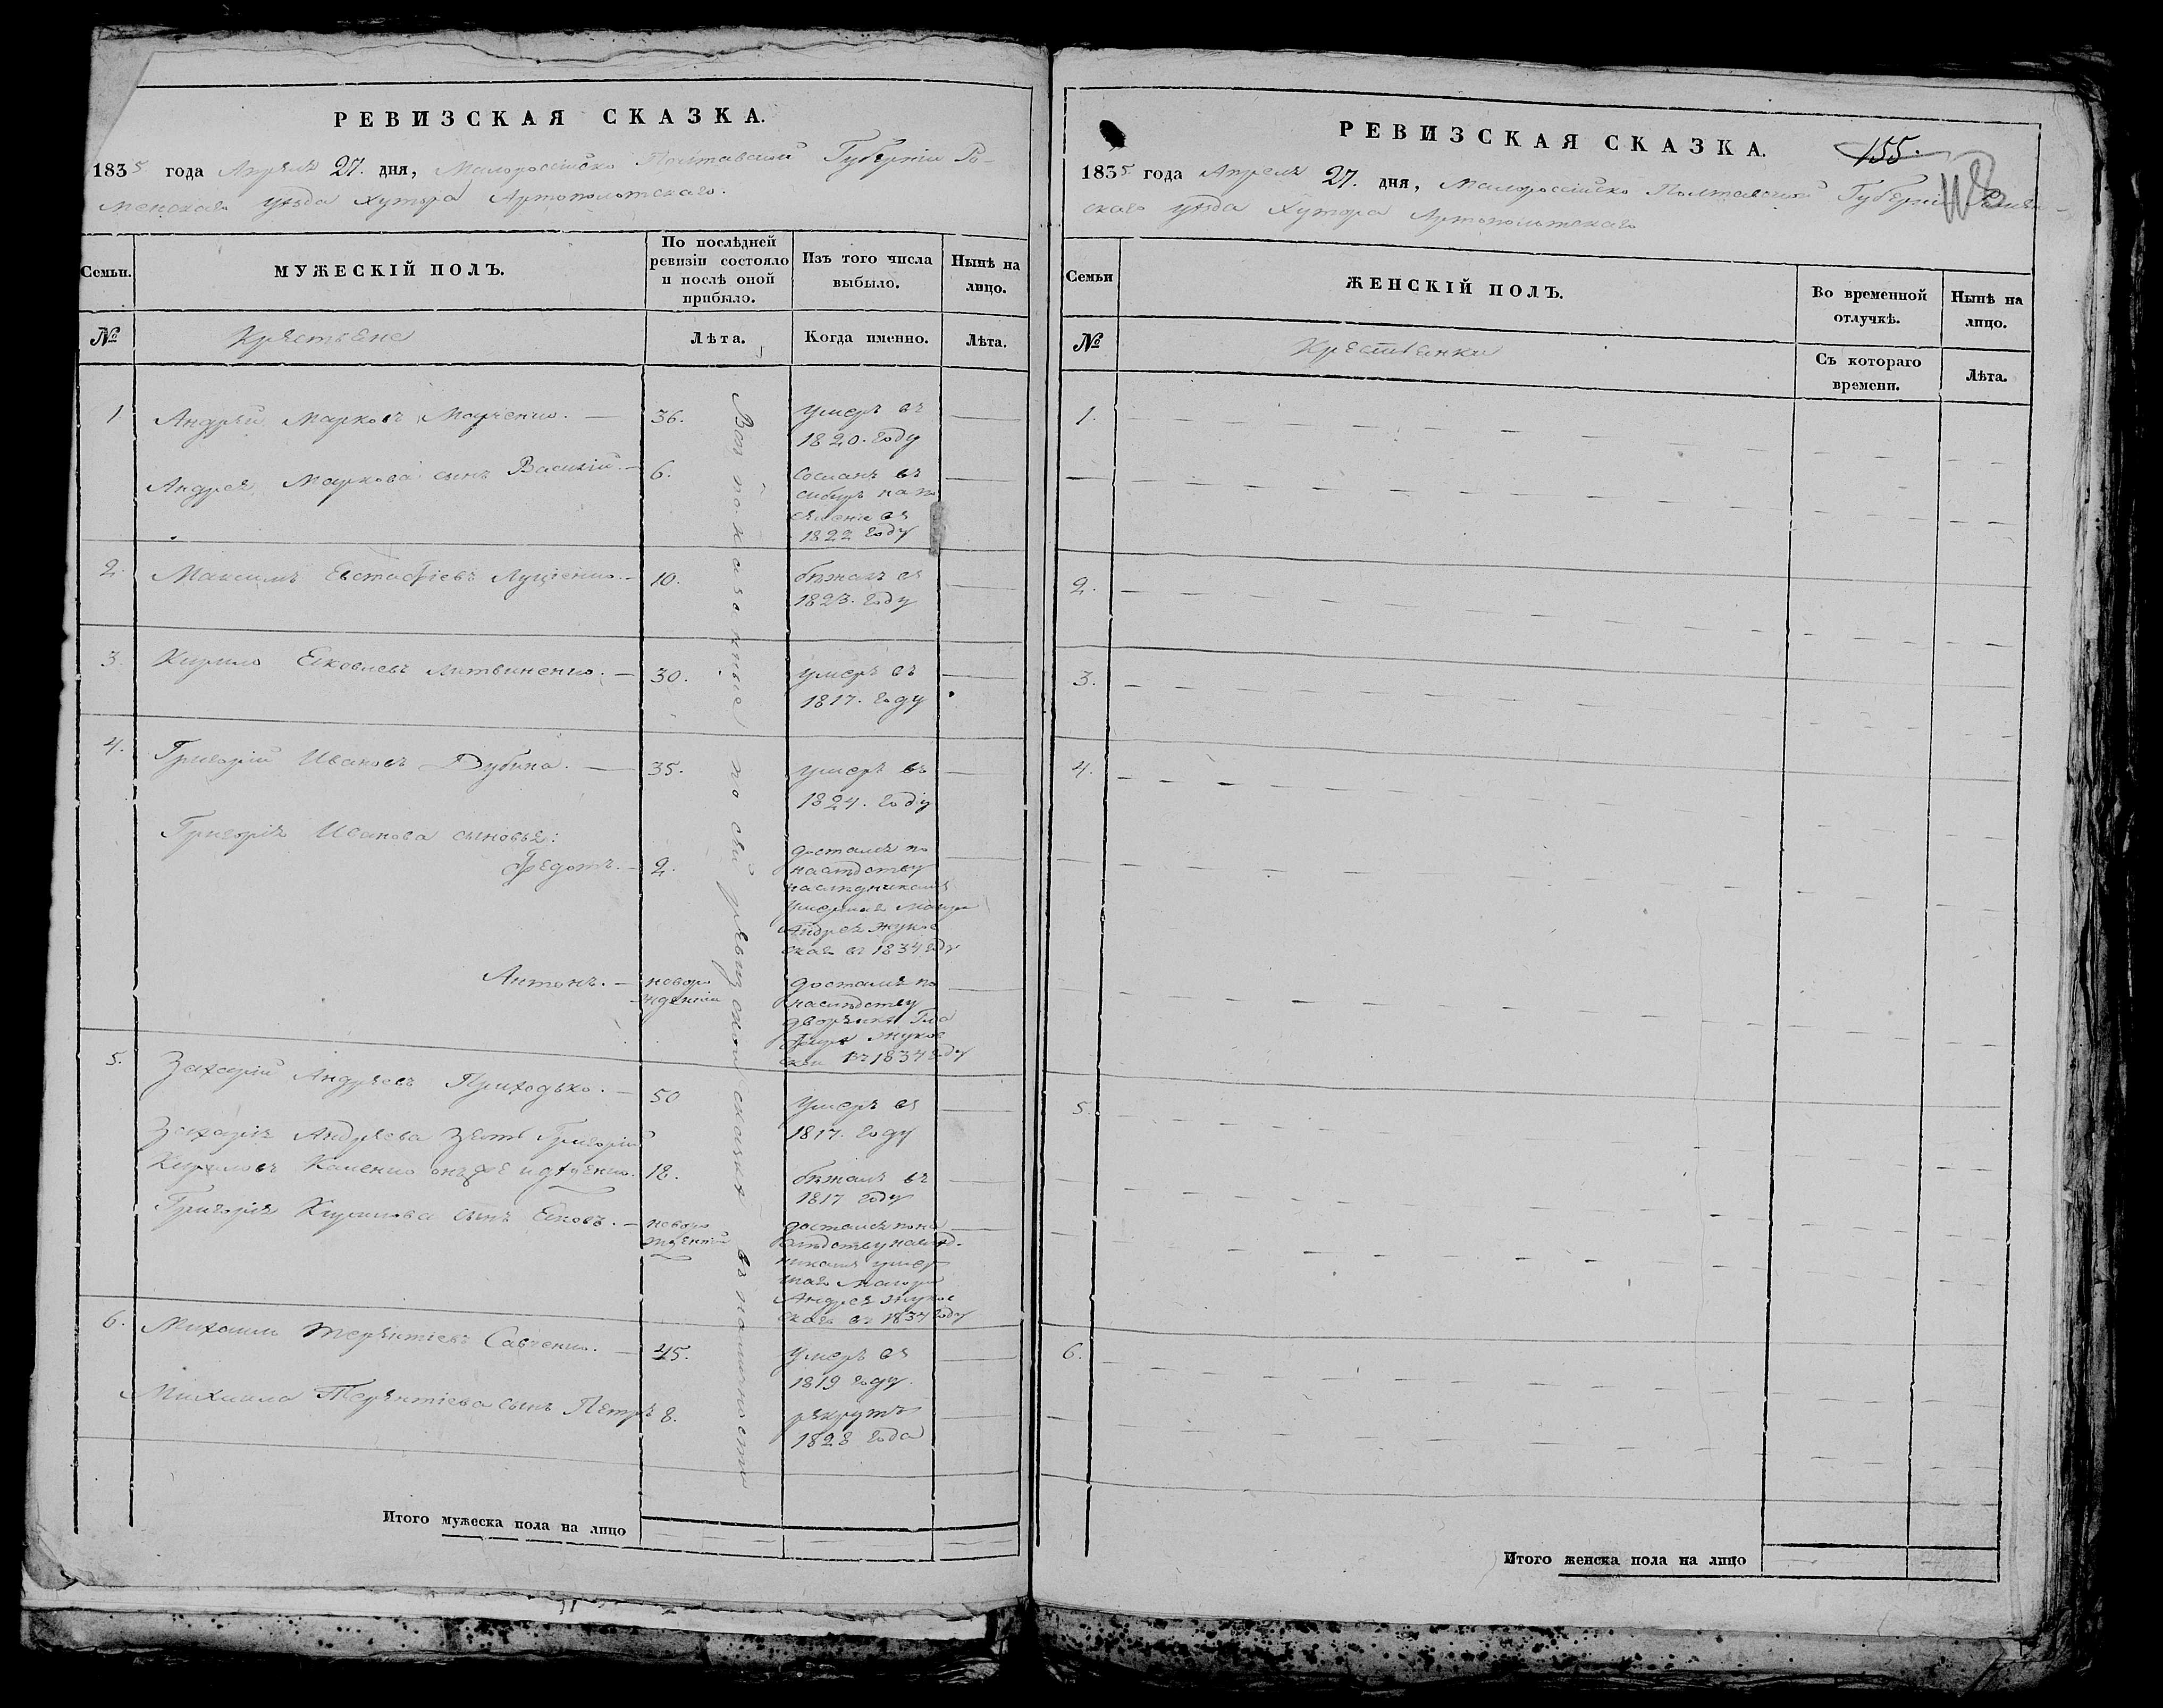 РЕВИЗСКАЯ СКАЗКА.
1835 года Апреля 27. дня, Малороссійско Полтавской Губерніи Ро-
менскаго уезда Хутора Артополотскаго.
Семьи.
МУЖЕСКІЙ ПОЛЪ.
По послѣдней
ревизіи состояло
и послѣ оной
прибыло.
Изъ того числа
выбыло.
Нынѣ на
лицо.
№
Крестьяне
Лѣта.
Когда именно.
Лѣта.
1
Андрей Марковъ Марченко. —
36.
умеръ въ
1820. году
Андрея Маркова сынъ Василій. —
6.
Сосланъ въ
сибирь на по
селение въ
1822 году
2.
Максимъ Евстафіевъ Луценко. —
10.
бежалъ въ
1823. году
3.
Кирило Яковлевъ Литвиненко. —
30.
умеръ въ
1817. году
4.
Григорій Ивановъ Дубина. —
35.
умеръ въ
1824. году
Григорія Иванова сыновья:
Федотъ. —
2.
достался по
наследству
наследникамъ
умершаго Маіора
Андрея Жуков
скаго въ 1834 году
Антонъ. —
новоро
жденный
достался по
наследству
Жуков
въ 1834 году
5.
Захарій Андреевъ Приходько. —
50
умеръ въ
1817. году
Захарія Андреева зять Григорій
Кириловъ
18.
бежалъ въ
1817 году
Григорія Кирилова сынъ Яковъ. —
новоро
жденный
достался по на
следству наслед-
никамъ умер
шаго Маіора
Андрея Жуков
скаго въ 1834 году
6.
Михаилъ Терентіевъ Савченко. —
45.
умеръ въ
1819 году.
Михаила Терентіева сынъ Петръ
8.
рекрутъ
1828 года
Все показанные по сей ревизской сказке въ наличности
Итого мужеска пола на лицо
РЕВИЗСКАЯ СКАЗКА.
155.
1835 года Апреля 27. дня, Малороссійско Полтавской Губерніи Ромен-
скаго уезда Хутора Артополотскаго
Семьи
ЖЕНСКІЙ ПОЛЪ.
Во временной
отлучкѣ.
Нынѣ на
лицо.
№
Крестьянки
Съ котораго
времени.
Лѣта.
1.
2.
3.
4.
5.
6.
Итого женска пола на лицо